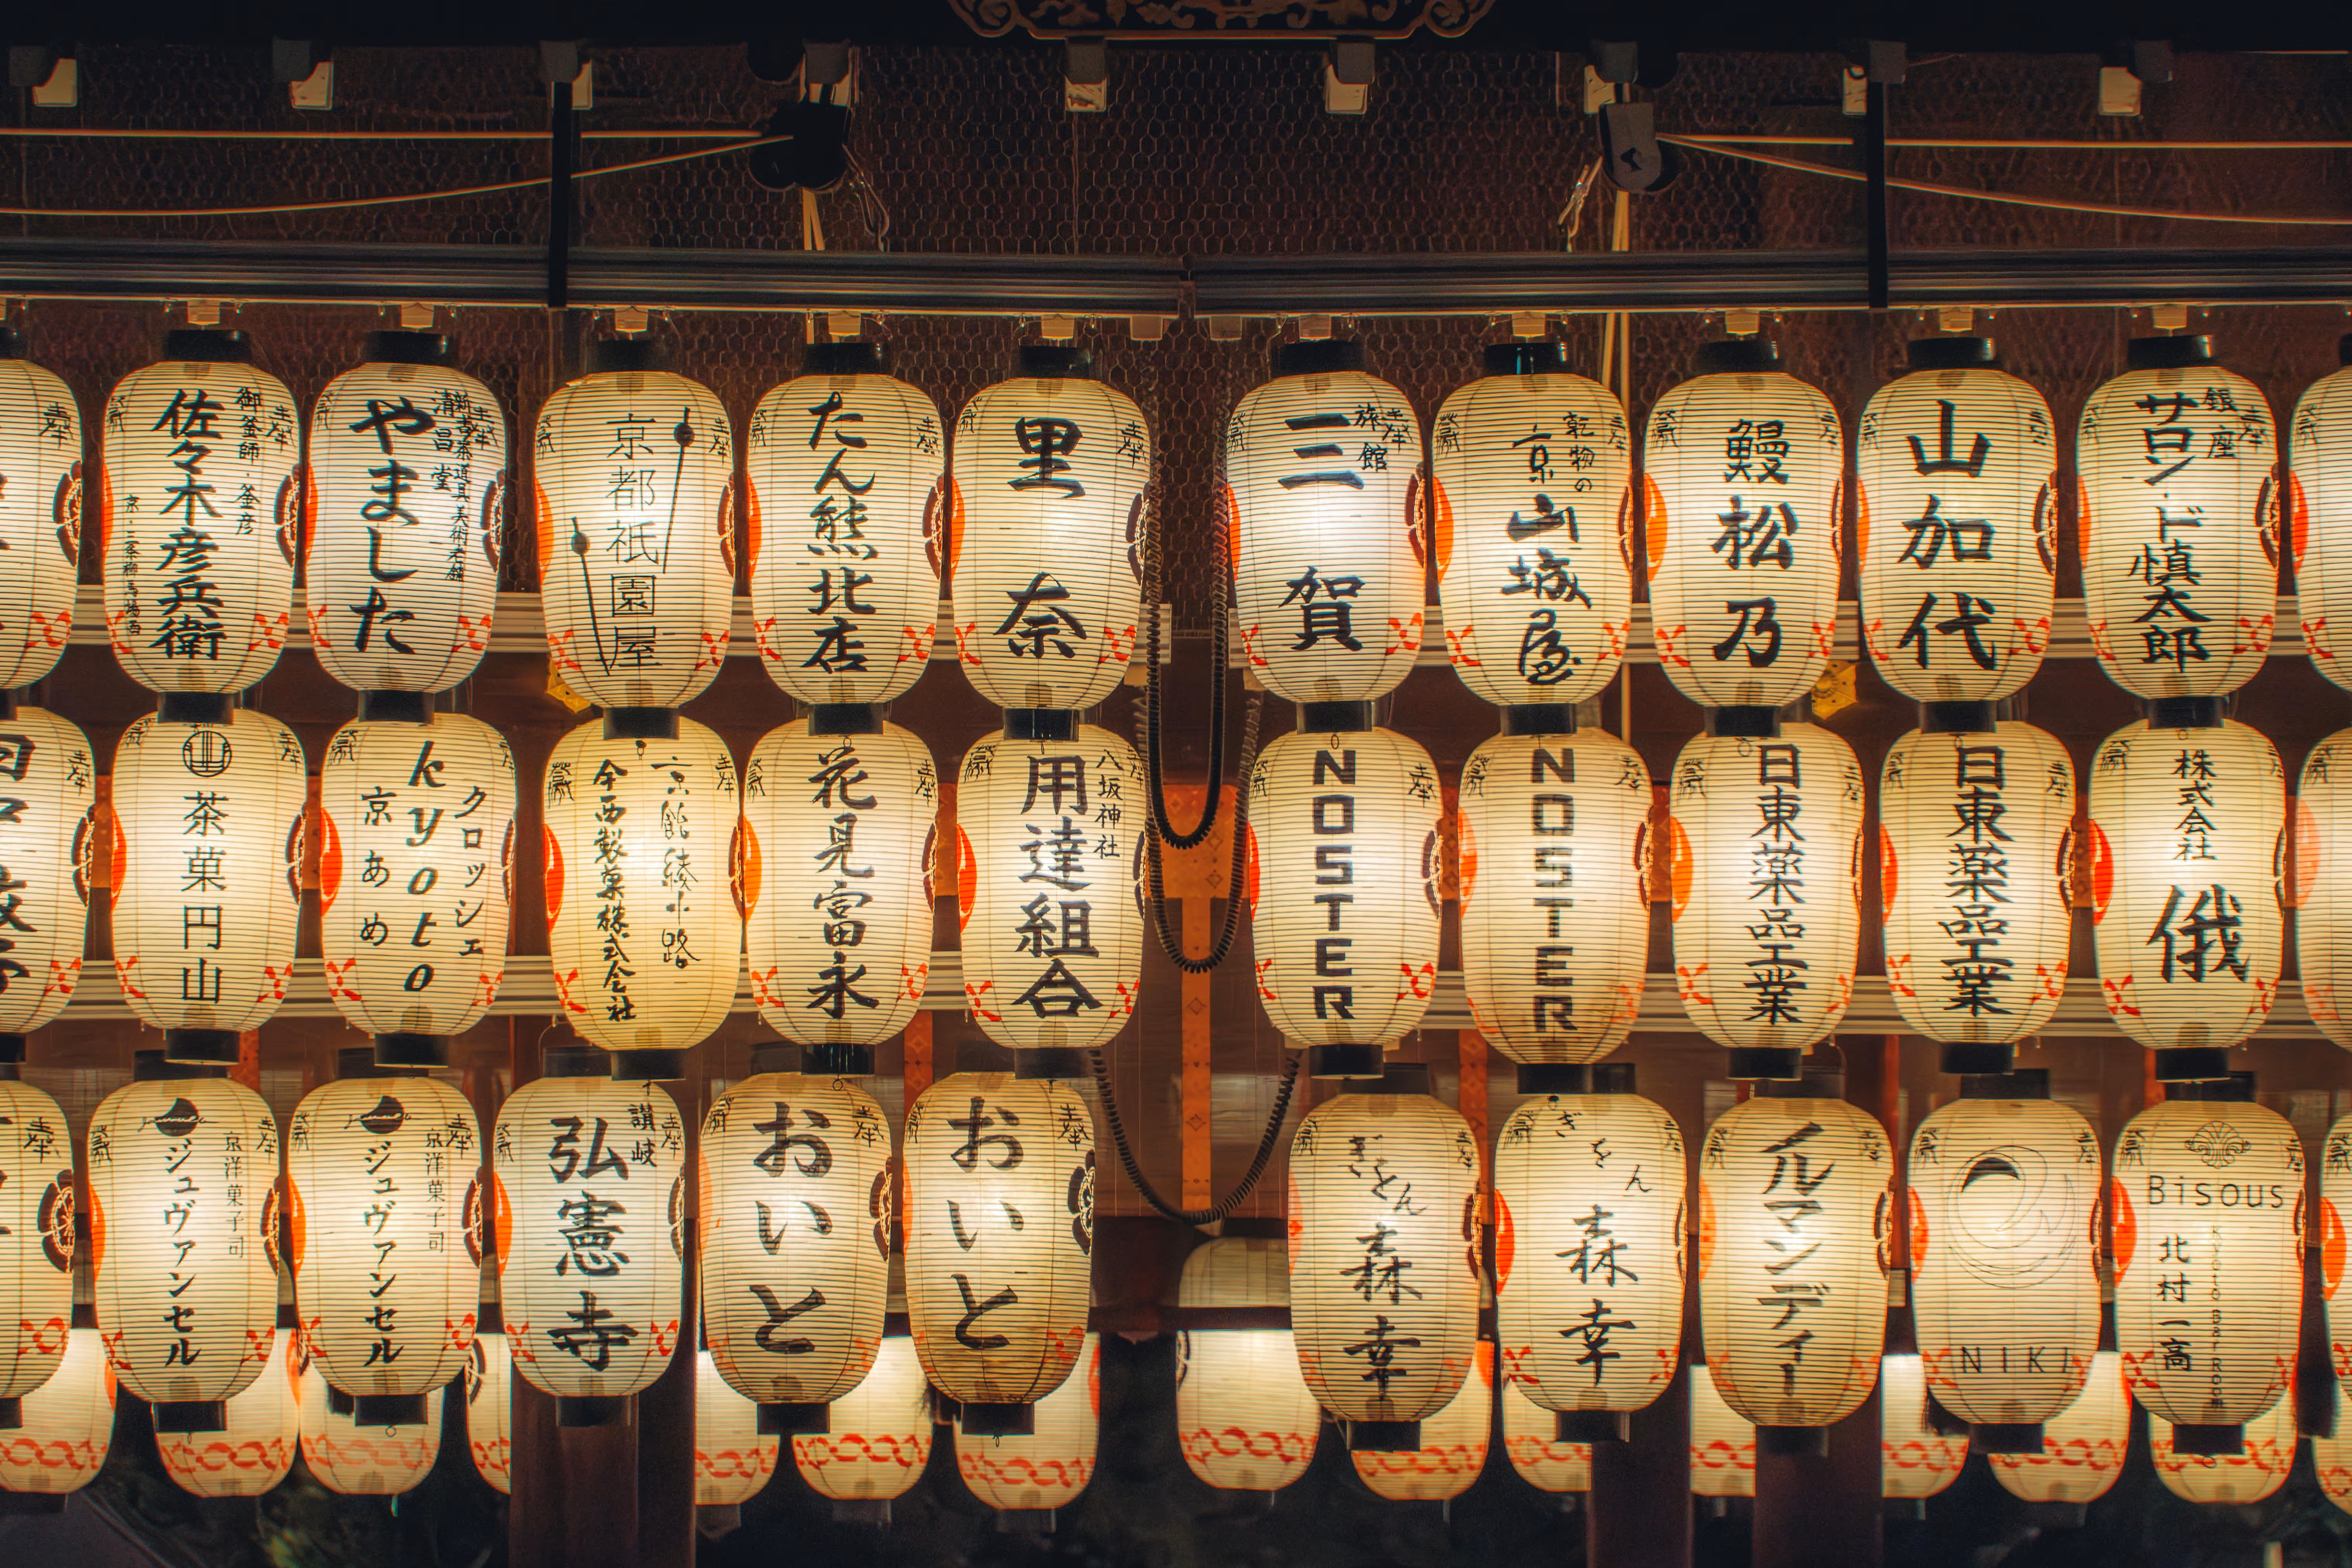 御釜師 釜彦
佐々木彦兵衛
清昌堂
やました
京都祇園屋
たん熊北店
里奈
旅館
三賀
乾物の
京山城屋
鰻松乃
山加代
銀座
サロン・ド慎太郎
茶菓円山
クロッシェ
kyoto
京あめ
京銘綾小路
今西製菓株式会社
花見富永
八坂神社
用達組合
NOSTER
NOSTER
日東薬品工業
日東薬品工業
株式会社
俄
京洋菓子司
ジュヴァンセル
京洋菓子司
ジュヴァンセル
讃岐
弘憲寺
おいと
おいと
ぎをん
森幸
ぎをん
森幸
イルマンディー
NIKI
Bisous
Kyoto Bar Room
北村一高